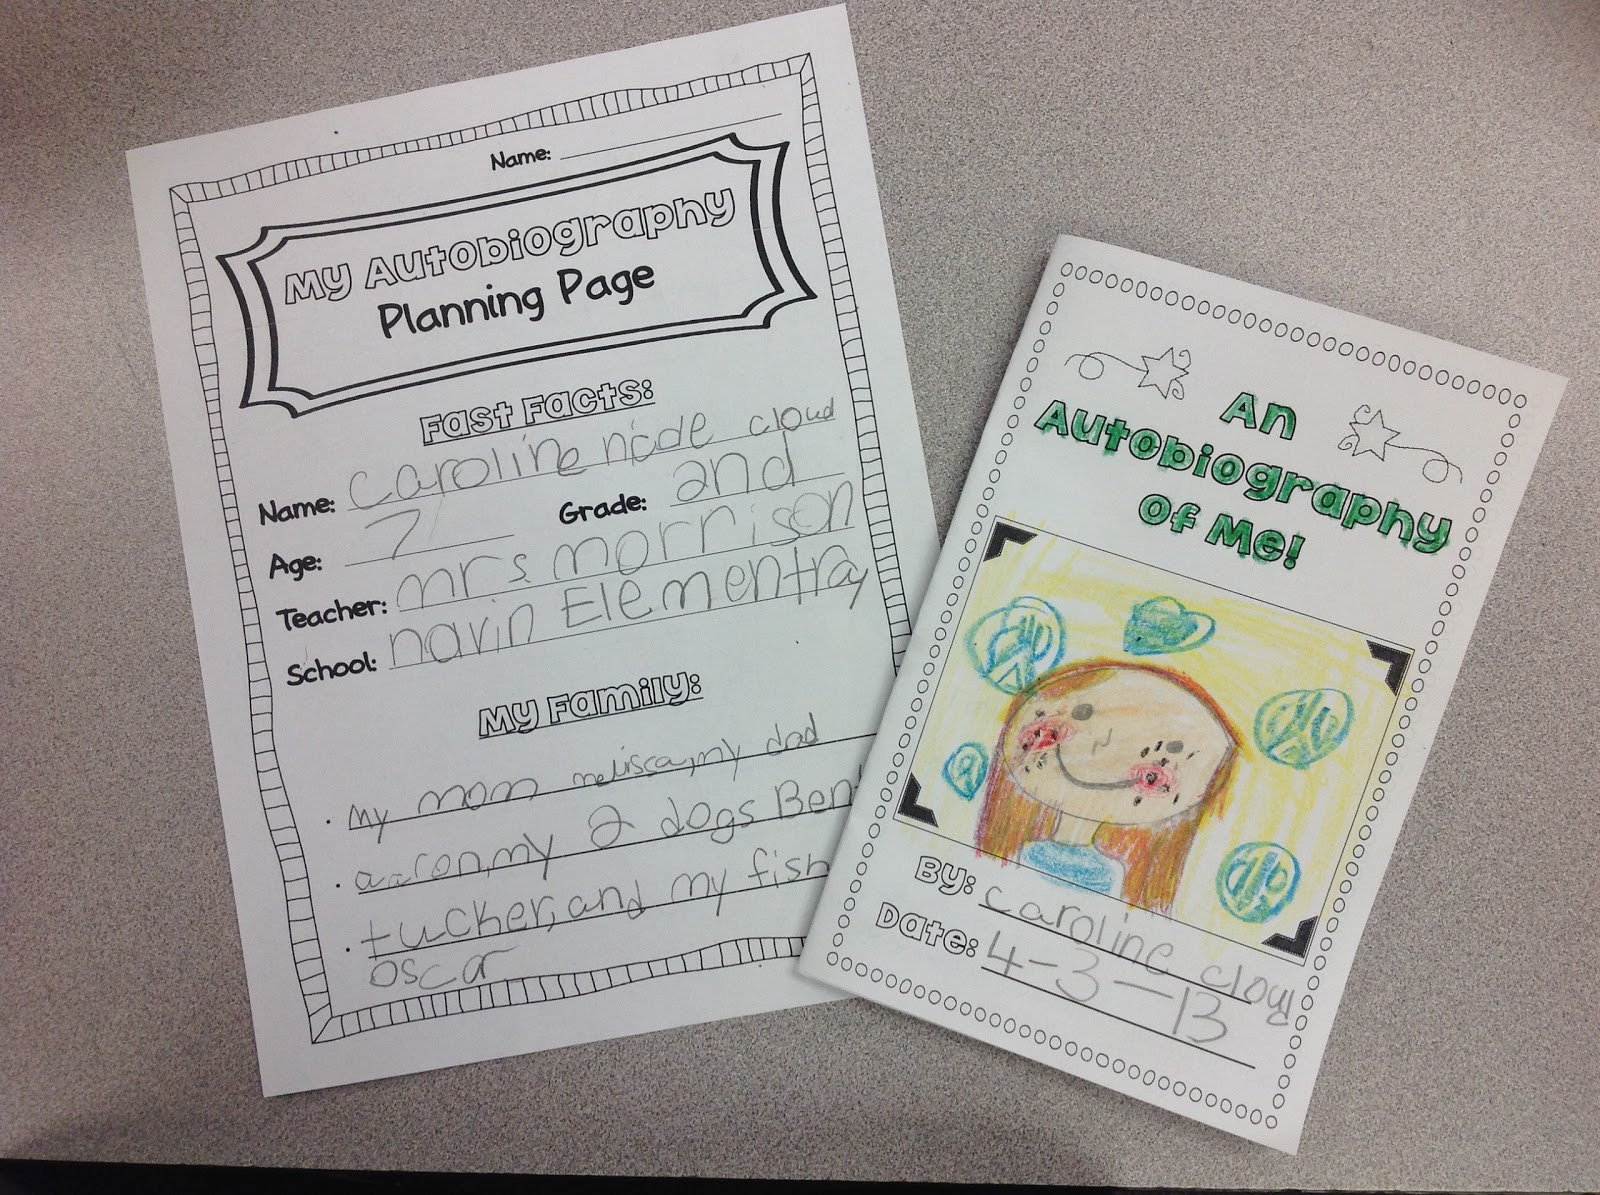 Name:
My Autobiography
Planning Page
Fast Facts:
Name: caroline nicole cloud
Age: 7 Grade: 2nd
Teacher: mrs morrison
School: navin Elementray
My Family:
. My mom melissa, my dad
. aaron, my 2 dogs Ben
. tucker, and my fish
oscar
An
Autobiography
Of Me!
By: caroline cloud
Date: 4-3-13